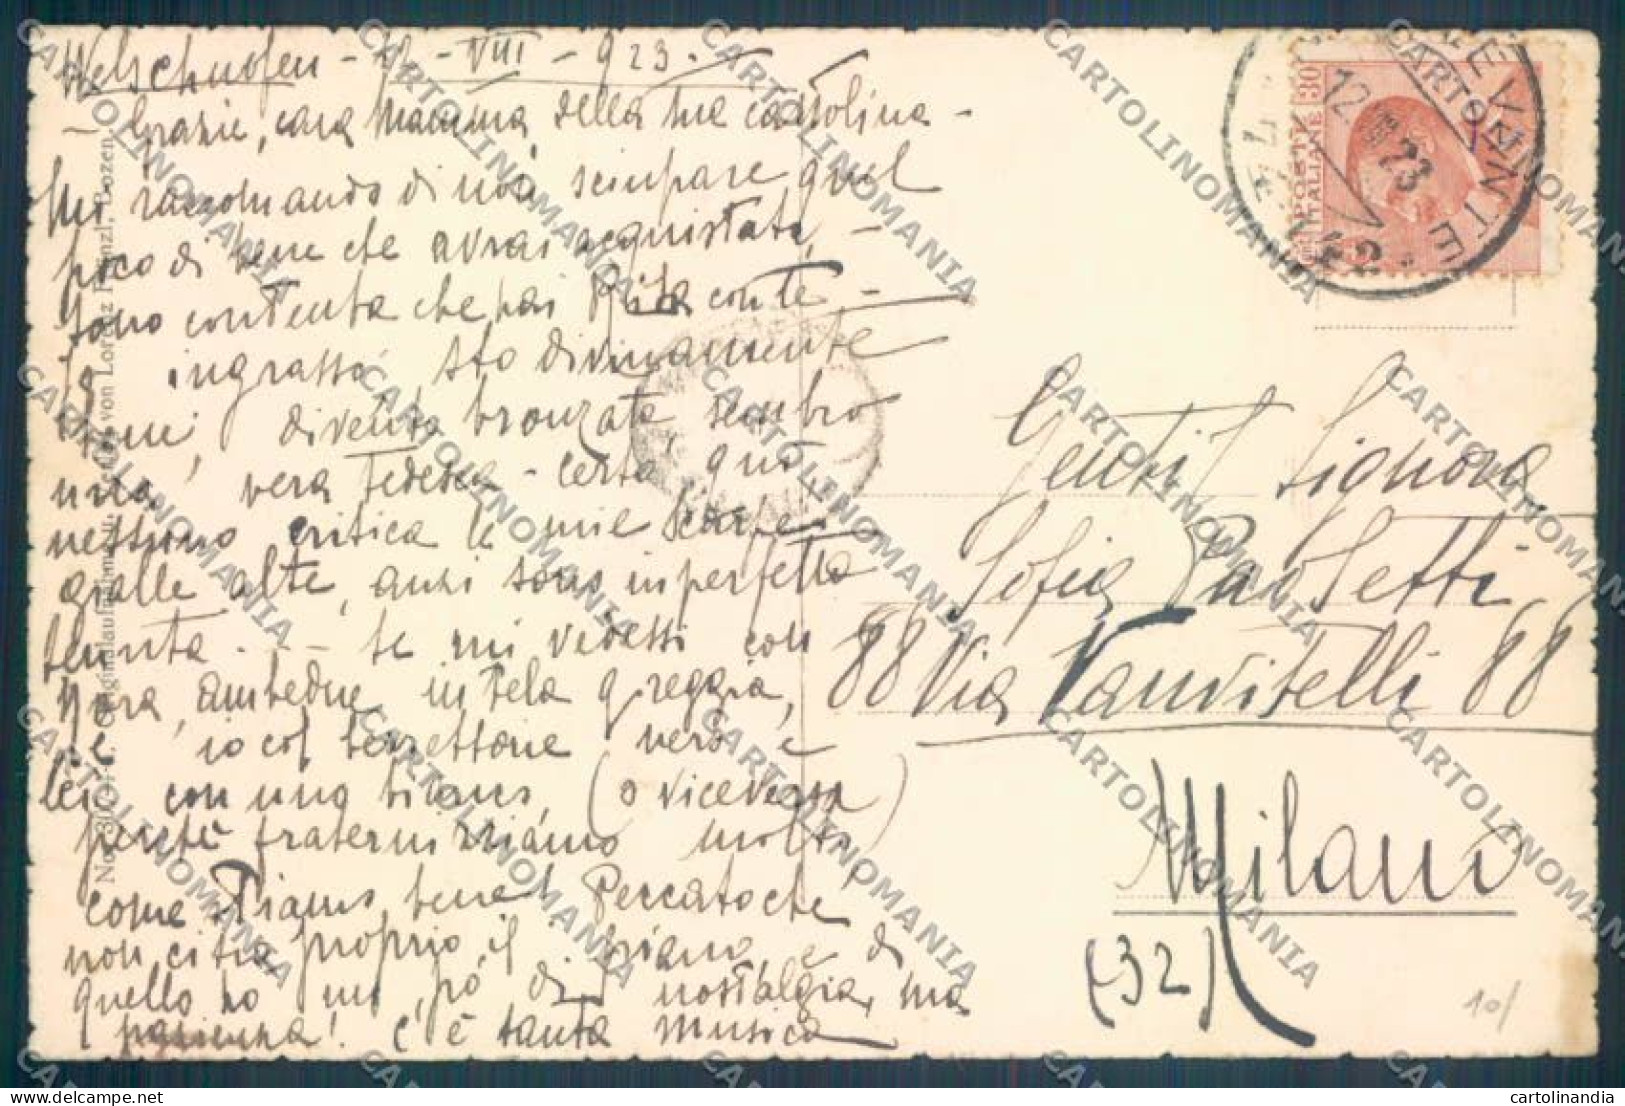 Welschnofen - 12 - VIII - 923.
- Grazie, cara Mamma, della tua cartolina -
Mi raccomando di non sciupare quel
poco di bene che avrai acquistato, -
Sono contenta che hai Rita con te -
Io ingrasso, sto divinamente
bene, divento bronzata, sembro
una vera tedesca - certo, qui,
nessuno critica le mie scarpe
gialle alte, anzi sono in perfetta
tenuta. - Se mi vedessi con
Nora, ambedue in tela greggia,
io col berrettone verde e
lei con uno bianco, (o viceversa)
perchè fraternizziamo molto
come stiamo bene! Peccato che
non ci sia proprio il piano, e di
quello ho un po' di nostalgia, ma
pazienza! c'è tanta musica
Gentil Signora
Sofia Paoletti
88 Via Vanvitelli 88
Milano
(32)
10/
POSTE ITALIANE
30
12 VIII 23
LEVANTE
No. 30
Originalaufnahme
von Lorenz Fränzl, Bozen.
CARTOLINOMANIA
cartolinandia